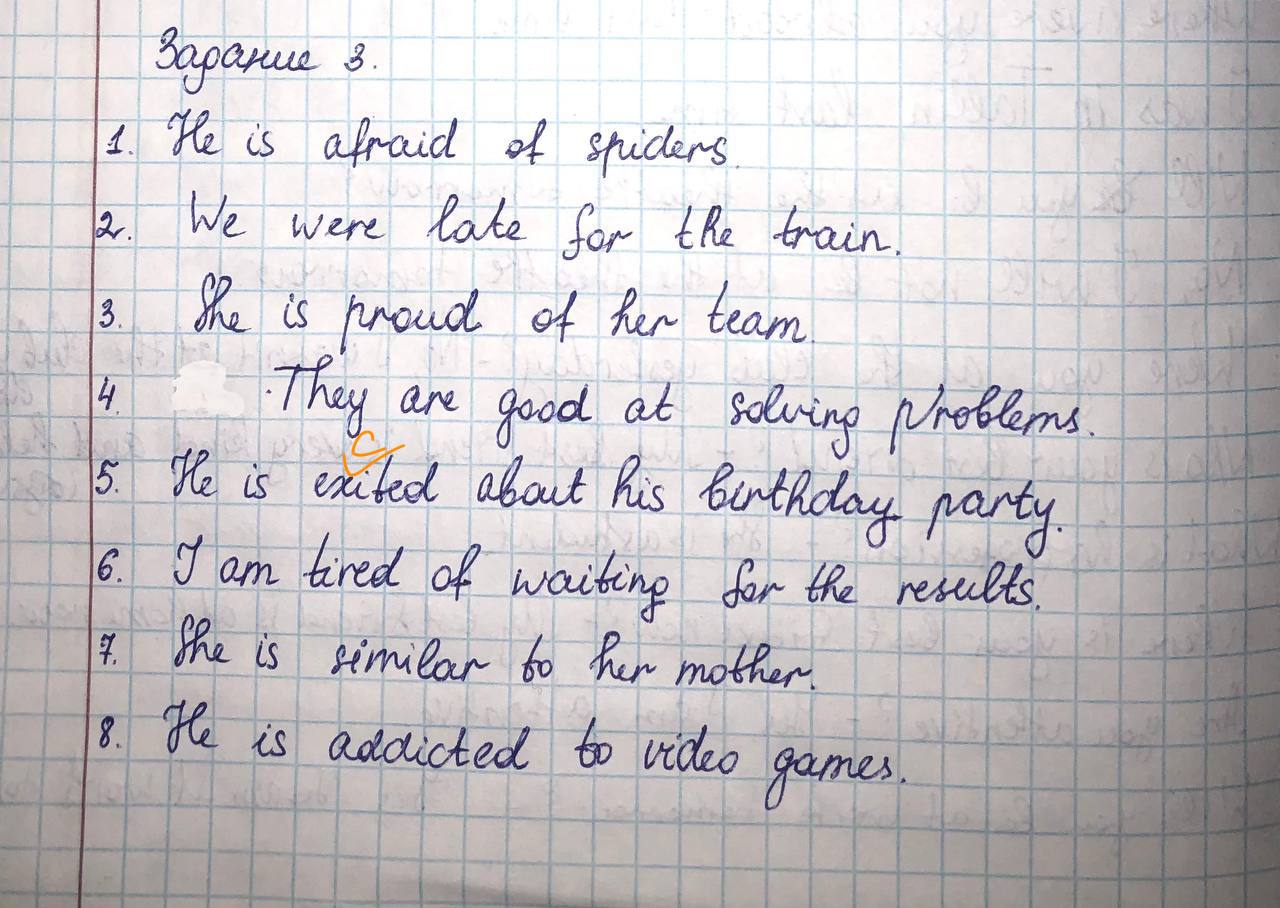 Задание 3.
1. He is afraid of spiders.
2. We were late for the train.
3. She is proud of her team.
4. They are good at solving problems.
c
5. He is exited about his birthday party.
6. I am tired of waiting for the results.
7. She is similar to her mother.
8. He is addicted to video games.